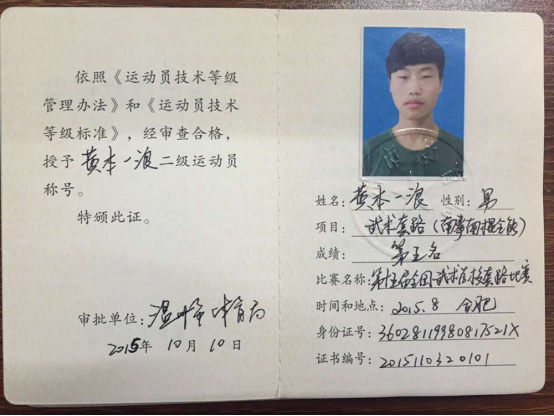 依照《运动员技术等级
管理办法》和《运动员技术
等级标准》，经审查合格，
授予 黄本一浪 二级运动员
称号。
特颁此证。
审批单位：温州市体育局
2015年10月10日
姓名：黄本一浪 性别：男
项目：武术套路（南拳南棍全能）
成绩：第五名
比赛名称：第十五届全国武术学校套路比赛
时间和地点：2015.8 合肥
身份证号：36028119980817521X
证书编号：2015110320101